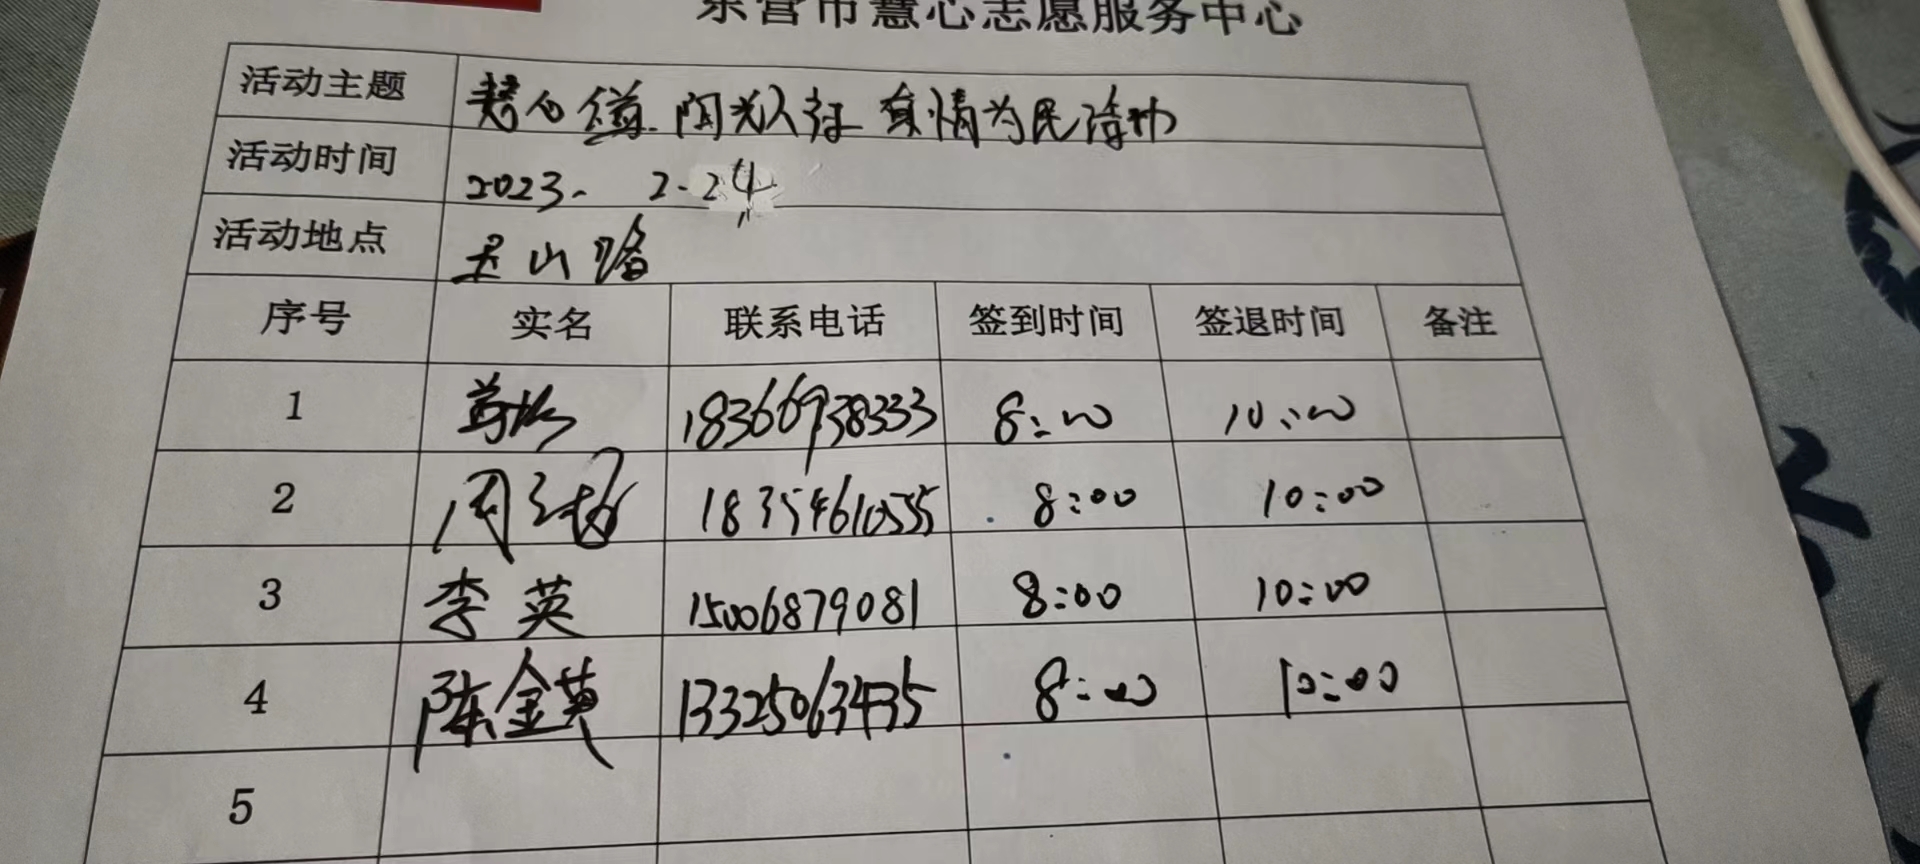 东营市慧心志愿服务中心
活动主题 慧心缘 阳光人社 真情为民
活动时间 2023. 2.24
活动地点 山路
序号 实名 联系电话 签到时间 签退时间 备注
1 18366938333 8:00 10:00
2 周 18354610555 8:00 10:00
3 李英 15006879081 8:00 10:00
4 陈金英 13325063435 8:00 10:00
5